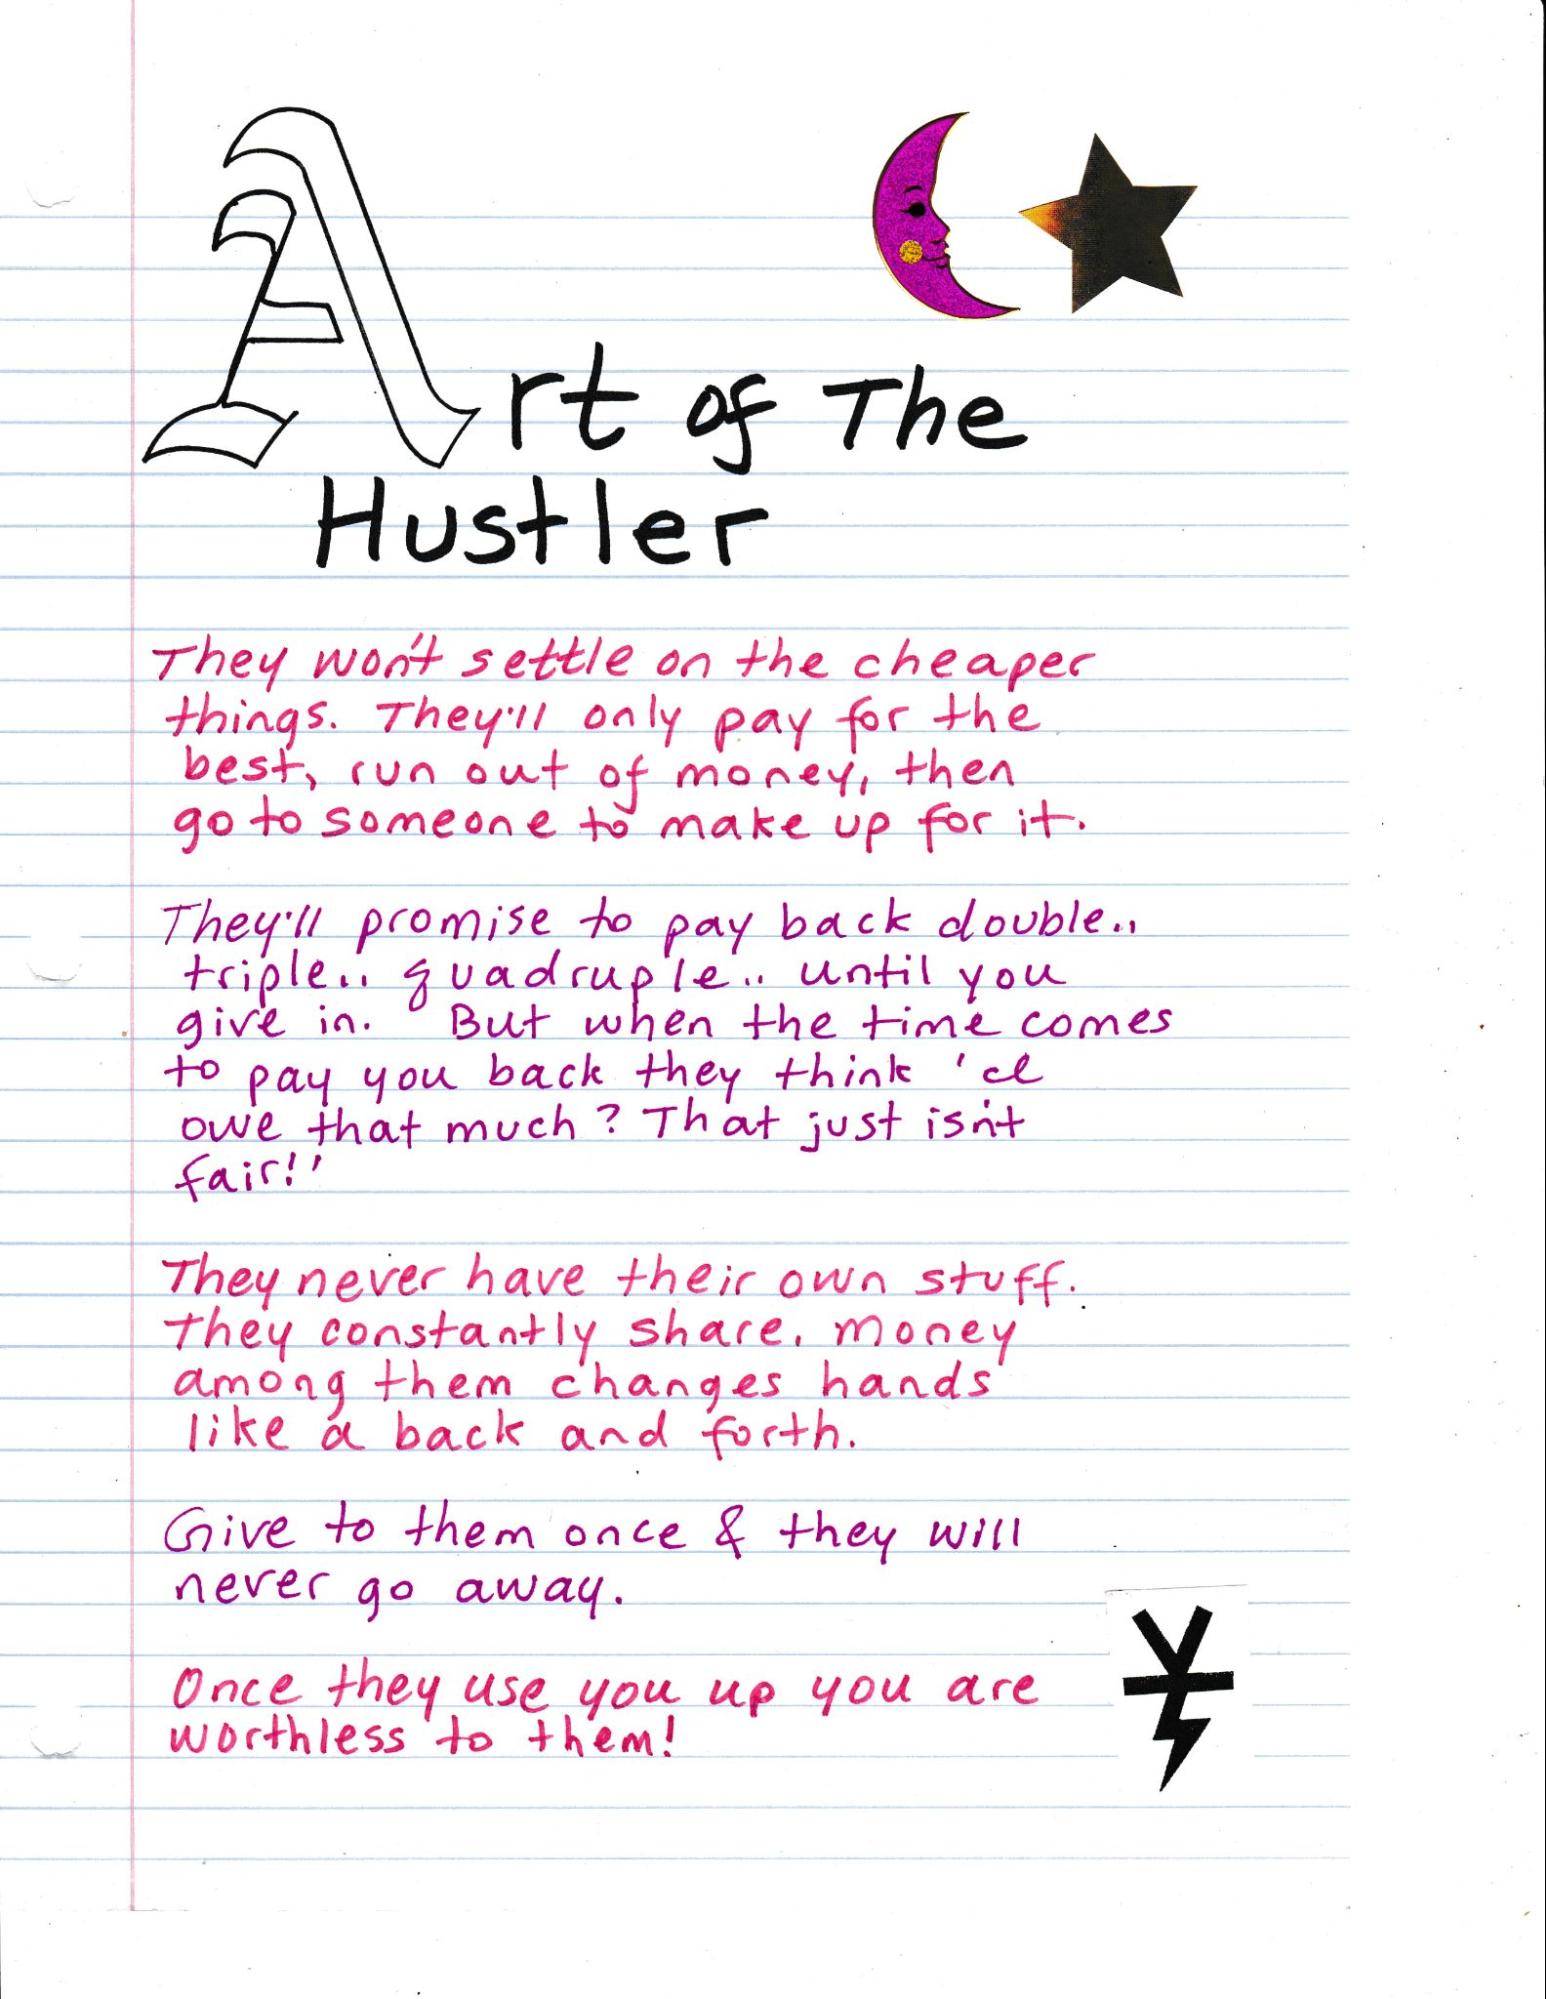 Art of The
Hustler
They won't settle on the cheaper
things. They'll only pay for the
best, run out of money, then
go to someone to make up for it.
They'll promise to pay back double..
triple.. quadruple.. until you
give in. But when the time comes
to pay you back they think 'I
owe that much? That just isn't
fair!'
They never have their own stuff.
They constantly share. Money
among them changes hands
like a back and forth.
Give to them once & they will
never go away.
Once they use you up you are
worthless to them!